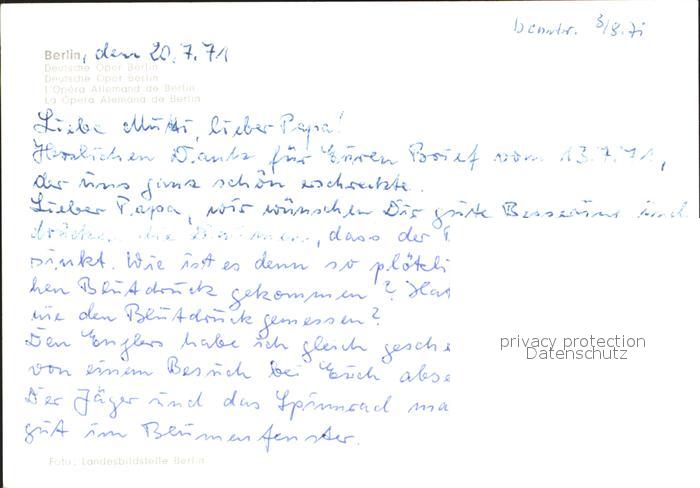 beantw. 3/8.71
Berlin, den 20.7.71
Deutsche Oper Berlin
Deutsche Oper Berlin
L'Opéra Allemand de Berlin
La Opera Alemana de Berlin
Liebe Mutti, lieber Papa!
Herzlichen Dank für Euren Brief vom 13.7.71,
der uns ganz schön erschreckte.
Lieber Papa, wir wünschen Dir gute Besserung und
drücken die Daumen, dass der
sinkt. Wie ist es denn so plötzli
hen Blutdruck gekommen? Hat
nie den Blutdruck gemessen?
Den Englers habe ich gleich gesche
von einem Besuch bei Euch abse
Der Jäger und das Spinnrad ma
gut im Blumenfenster.
privacy protection
Datenschutz
Foto: Landesbildstelle Berlin